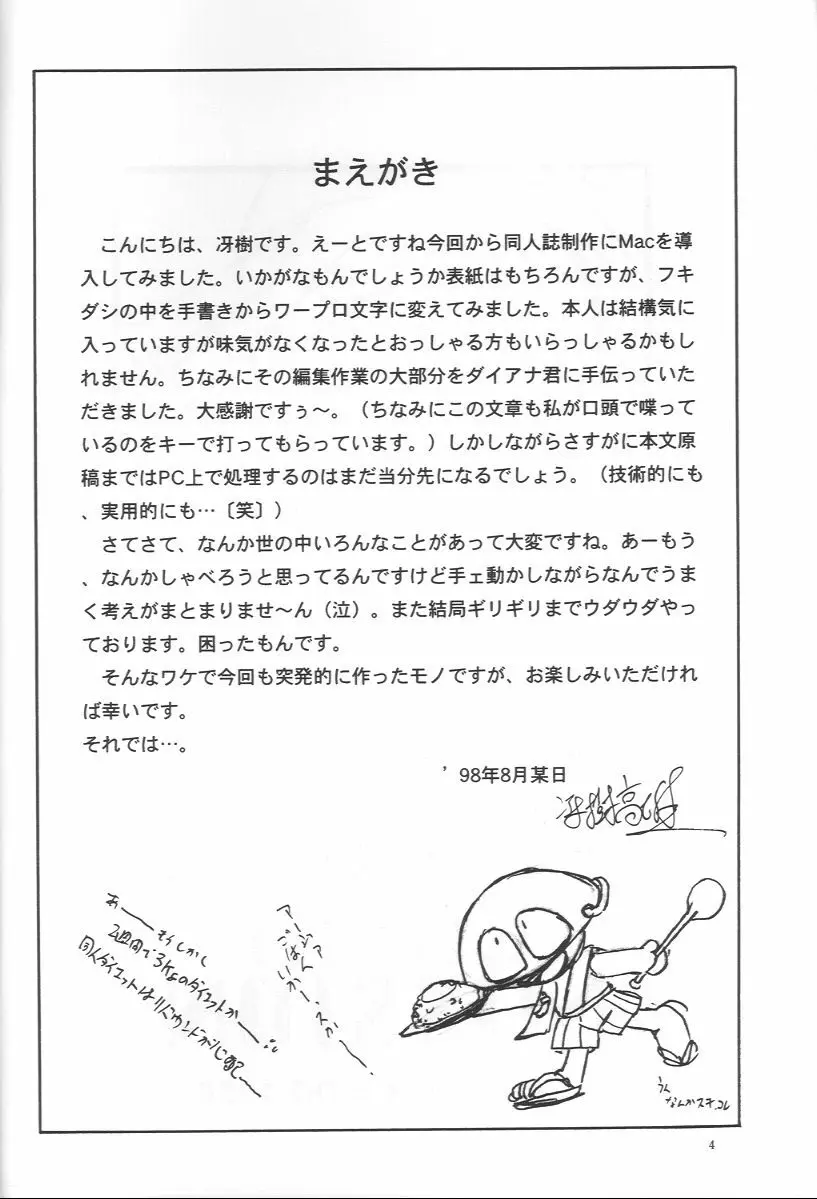 まえがき
　こんにちは、冴樹です。えーとですね今回から同人誌制作にMacを導
入してみました。いかがなもんでしょうか表紙はもちろんですが、フキ
ダシの中を手書きからワープロ文字に変えてみました。本人は結構気に
入っていますが味気がなくなったとおっしゃる方もいらっしゃるかもし
れません。ちなみにその編集作業の大部分をダイアナ君に手伝っていた
だきました。大感謝ですぅ〜。（ちなみにこの文章も私が口頭で喋って
いるのをキーで打ってもらっています。）しかしながらさすがに本文原
稿まではPC上で処理するのはまだ当分先になるでしょう。（技術的にも
、実用的にも…〔笑〕）
　さてさて、なんか世の中いろんなことがあって大変ですね。あーもう
、なんかしゃべろうと思ってるんですけど手ェ動かしながらなんでうま
く考えがまとまりませ〜ん（泣）。また結局ギリギリまでウダウダやっ
ております。困ったもんです。
　そんなワケで今回も突発的に作ったモノですが、お楽しみいただけれ
ば幸いです。
それでは…。
’98年8月某日
冴樹高雄
あーーもくしかし
2週間で3Kgのダイエットかーー…
同人ダイエットはリバウンドが
ごはいかー
うん
なんかスキ、コレ
4